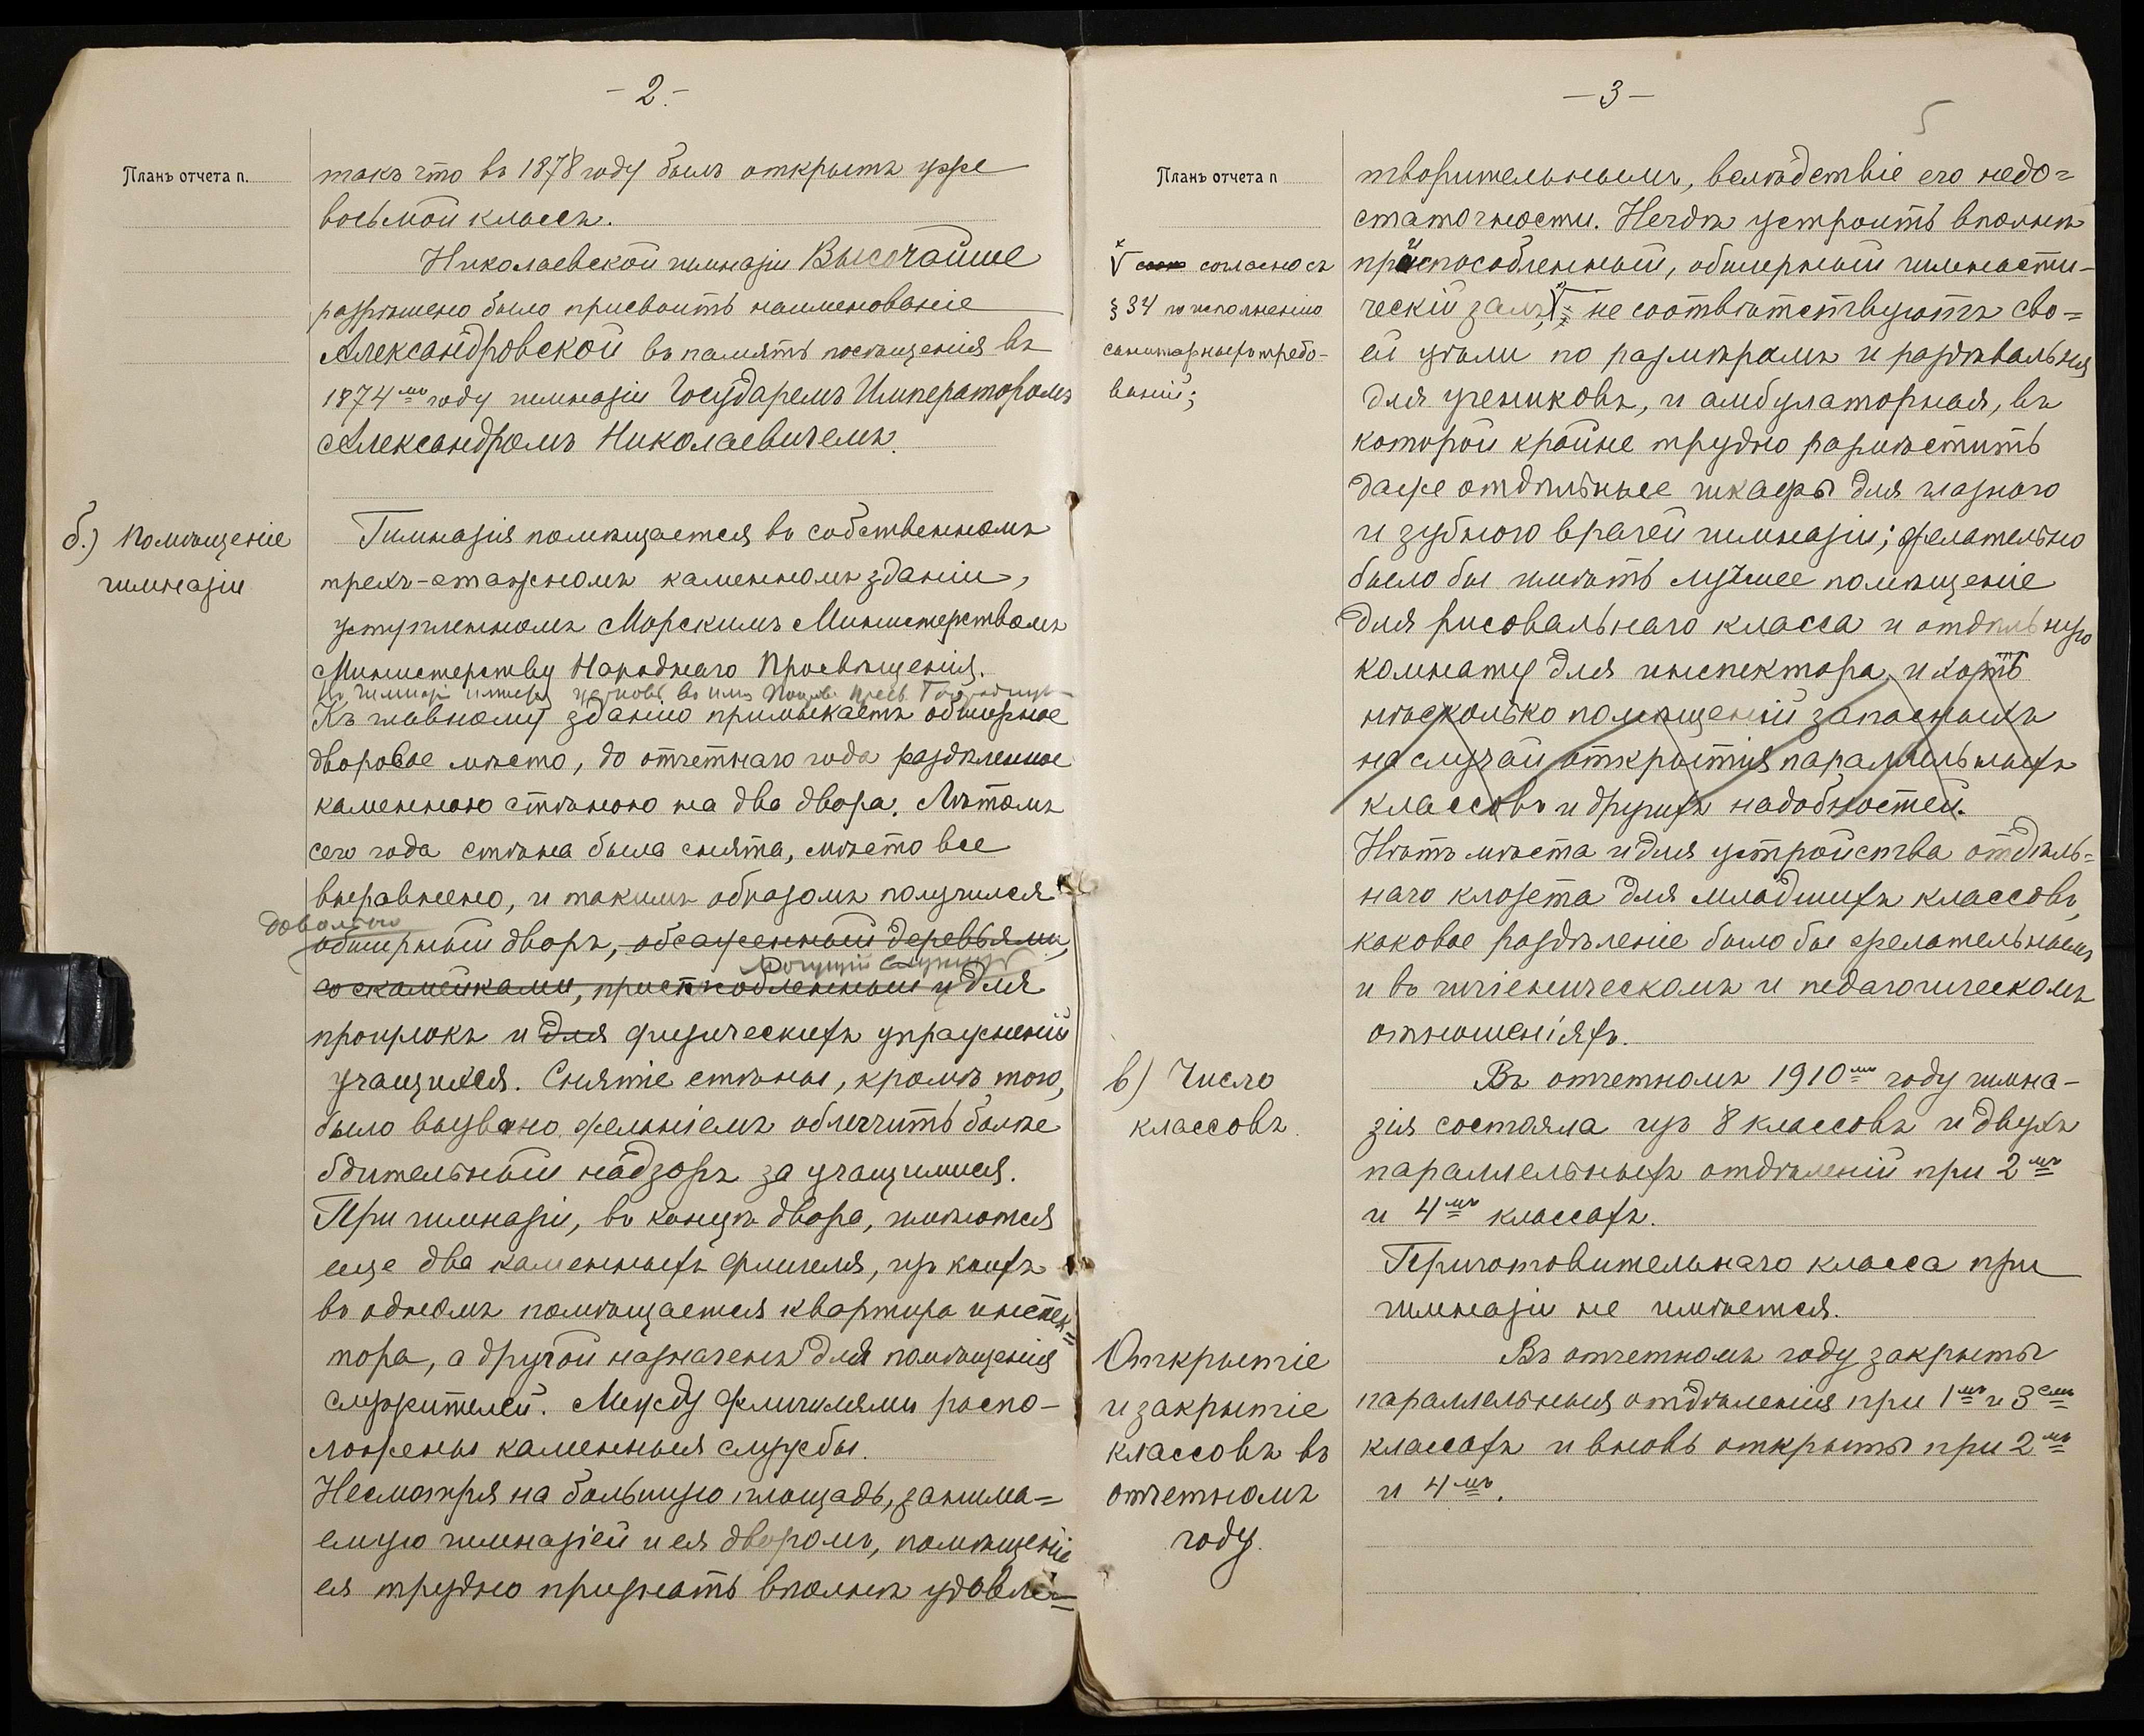 — 2. —
Планъ отчета п.
такъ что въ 1878 году былъ открытъ уже
восьмой классъ.
Николаевской гимназіи Высочайше
разрѣшено было присвоить наименованіе
Александровской въ память посѣщенія въ
1874мъ году гимназіи Государемъ Императоромъ
Александромъ Николаевичемъ.
б.) Помѣщеніе
гимназіи
Гимназія помѣщается въ собственномъ
трехъ-этажномъ каменномъ зданіи,
уступленномъ Морскимъ Министерствомъ
Министерству Народнаго Просвѣщенія.
церковь во имя
Къ главному зданію примыкаетъ обширное
дворовое мѣсто, до отчетнаго года раздѣленное
каменною стѣною на два двора. Лѣтомъ
сего года стѣна была снята, мѣсто все
выравнено, и такимъ образомъ получился
довольно
обширный дворъ, обсаженный деревьями,
могущій служить
со скамейками, приспособленный и для
прогулокъ и для физическихъ упражненій
учащихся. Снятіе стѣны, кромѣ того,
было вызвано желаніемъ облегчить болѣе
бдительный надзоръ за учащимися.
При гимназіи, въ концѣ двора, имѣются
еще два каменныхъ флигеля, изъ коихъ
въ одномъ помѣщается квартира инспек=
тора, а другой назначенъ для помѣщенія
служителей. Между флигилями распо-
ложены каменныя службы.
Несмотря на большую площадь, занима=
емую гимназіей и ея дворомъ, помѣщеніе
ея трудно признать вполнѣ удовле=
— 3 —
5
Планъ отчета п
творительнымъ, вслѣдствіе его недо=
статочности. Негдѣ устроить вполнѣ
приспособленный, обширный гимнасти-
ческій залъ, √ не соотвѣтствуютъ сво=
ей цѣли по размѣрамъ и раздѣвальня
для учениковъ, и амбулаторная, въ
которой крайне трудно размѣстить
даже отдѣльные шкафы для глазного
и зубного врачей гимназіи; желательно
было бы имѣть лучшее помѣщеніе
для рисовальнаго класса и отдѣльную
комнату для инспектора, и хоть
нѣсколько помѣщеній запасныхъ
на случай открытія параллельныхъ
классовъ и другихъ надобностей.
Нѣтъ мѣста и для устройства отдѣль=
наго клозета для младшихъ классовъ,
каковое раздѣленіе было бы желательнымъ
и въ гигіеническомъ и педагогическомъ
отношеніяхъ.
√ согласно съ
§ 34 по исполненію
санитарныхъ требо-
ваній;
в) Число
классовъ
Въ отчетномъ 1910мъ году гимна-
зія состояла изъ 8 классовъ и двухъ
параллельныхъ отдѣленій при 2мъ
и 4мъ классахъ.
Приготовительнаго класса при
гимназіи не имѣется.
Открытіе
и закрытіе
классовъ въ
отчетномъ
году.
Въ отчетномъ году закрыты
параллельныя отдѣленія при 1мъ и 3емъ
классахъ и вновь открыты при 2мъ
и 4мъ.